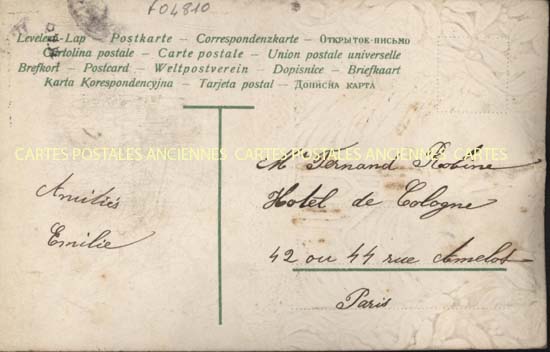 F04810
Levelező-Lap – Postkarte – Correspondenzkarte – Открыток-письмо
Cartolina postale – Carte postale – Union postale universelle
Brefkort – Postcard – Weltpostverein – Dopisnice – Briefkaart
Karta Korespondencyjna – Tarjeta postal – Дописна карта
CARTES POSTALES ANCIENNES CARTES POSTALES ANCIENNES
Amitiés
Emilie
Mr Fernand Robine
Hotel de Cologne
42 ou 44 rue Amelot
Paris